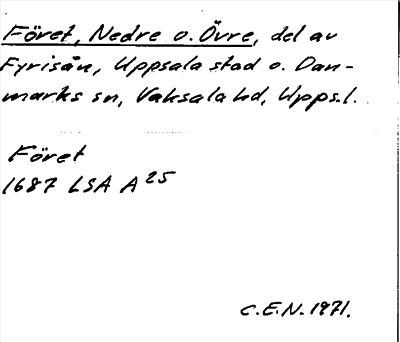 Föret, Nedre o. Övre, del av
Fyrisån, Uppsala stad o. Dan-
marks sn, Vaksala hd, Upps. l.
Föret
1687 LSA A 25
C.E.N. 1971.